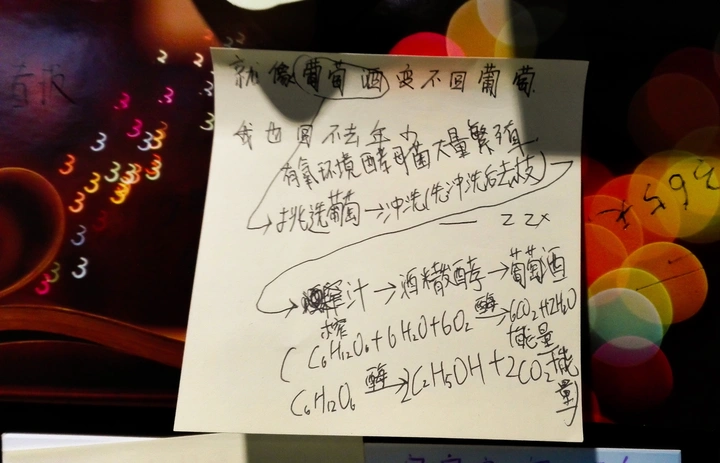 就像葡萄酒变不回葡萄
我也回不去年少
有氧环境酵母菌大量繁殖
挑选葡萄→冲洗(先冲洗后去枝)
— ZZX
榨汁→酒精发酵→葡萄酒
(C6H12O6+6H2O+6O2 酶→ 6CO2+12H2O
+能量
C6H12O6 酶→ 2C2H5OH+2CO2+能量)